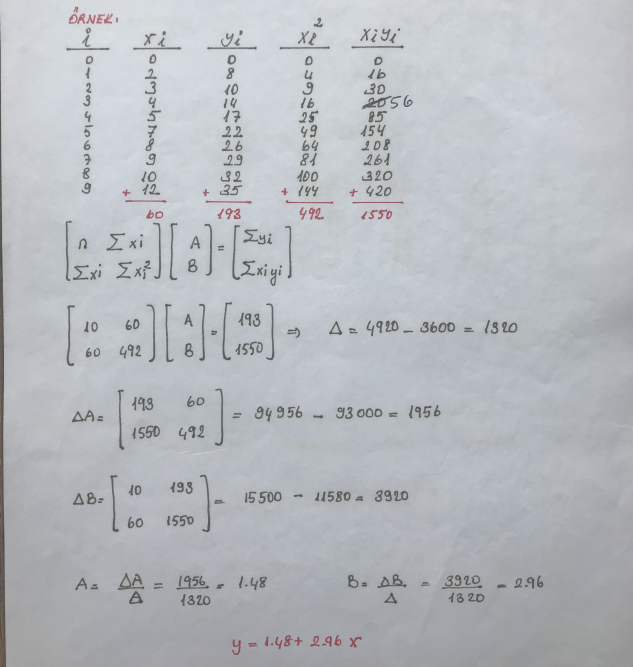 ÖRNEK:
i xi yi xi² xiyi
0 0 0 0 0
1 2 8 4 16
2 3 10 9 30
3 4 14 16 56
4 5 17 25 85
5 7 22 49 154
6 8 26 64 208
7 9 29 81 261
8 10 32 100 320
9 + 12 + 35 + 144 + 420
60 193 492 1550
[n Σxi] [A] = [Σyi]
[Σxi Σxi²] [B] [Σxiyi]
[10 60] [A] = [193] ⇒ Δ = 4920 - 3600 = 1320
[60 492] [B] [1550]
ΔA = [193 60] = 94956 - 93000 = 1956
[1550 492]
ΔB = [10 193] = 15500 - 11580 = 3920
[60 1550]
A = ΔA/Δ = 1956/1320 = 1.48 B = ΔB/Δ = 3920/1320 = 2.96
y = 1.48 + 2.96 x